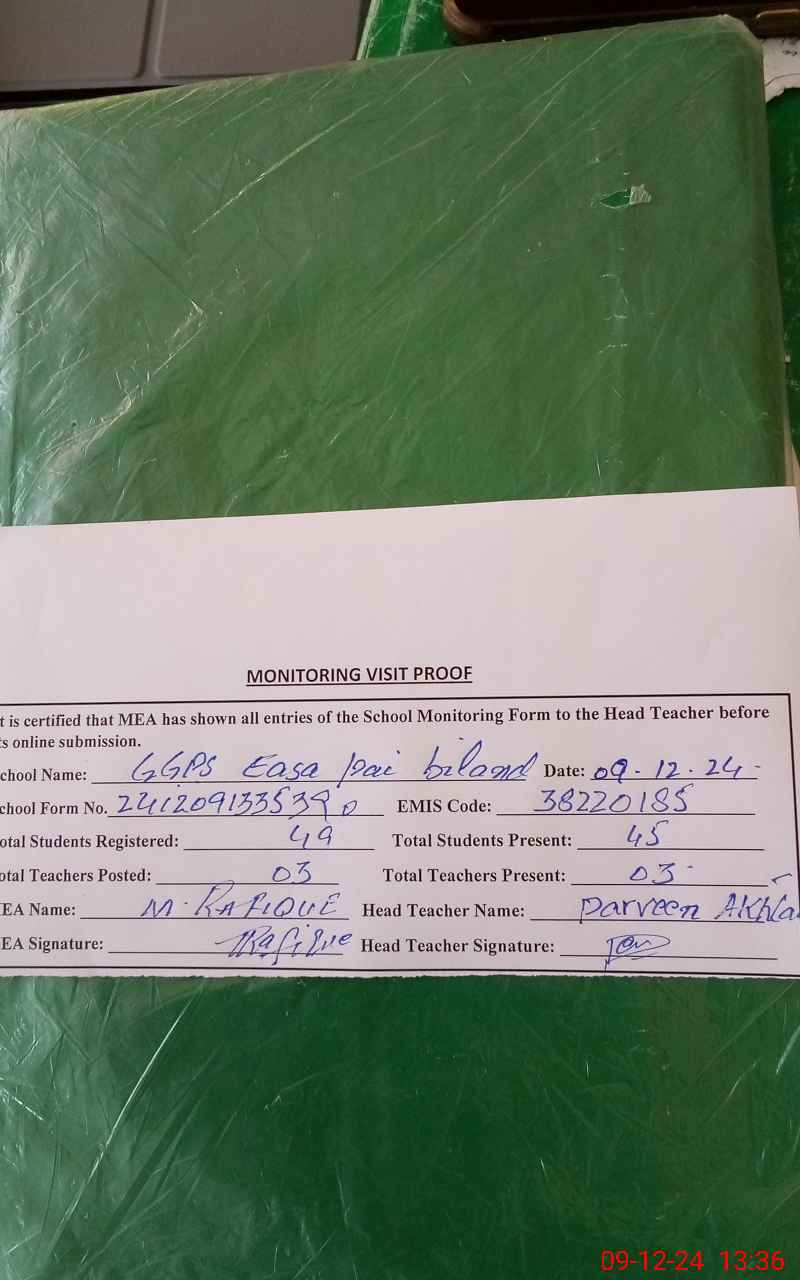 MONITORING VISIT PROOF
t is certified that MEA has shown all entries of the School Monitoring Form to the Head Teacher before
s online submission.
chool Name: GGPS Easa pai biland Date: 09.12.24
chool Form No. EMIS Code: 38220185
otal Students Registered: 49 Total Students Present: 45
otal Teachers Posted: 03 Total Teachers Present: 03
EA Name: M. RAFIQUE Head Teacher Name: Parveen
EA Signature: Rafique Head Teacher Signature:
09-12-24 13:36